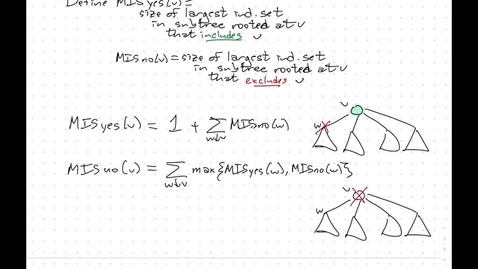 Define MISyes(v)=
size of largest ind.set
in subtree rooted at v
that includes v
MISno(v)=size of largest ind.set
in subtree rooted at v
that excludes v
MISyes(v) = 1 + ∑ MISno(w)
w↓v
v
w
MISno(v) = ∑ max{MISyes(w), MISno(w)}
w↓v
v
w